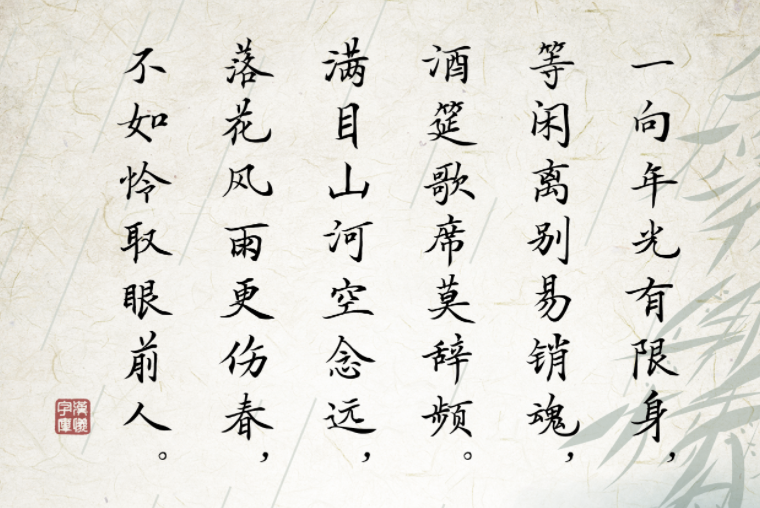 一向年光有限身，
等闲离别易销魂，
酒筵歌席莫辞频。
满目山河空念远，
落花风雨更伤春，
不如怜取眼前人。
漢儀字庫